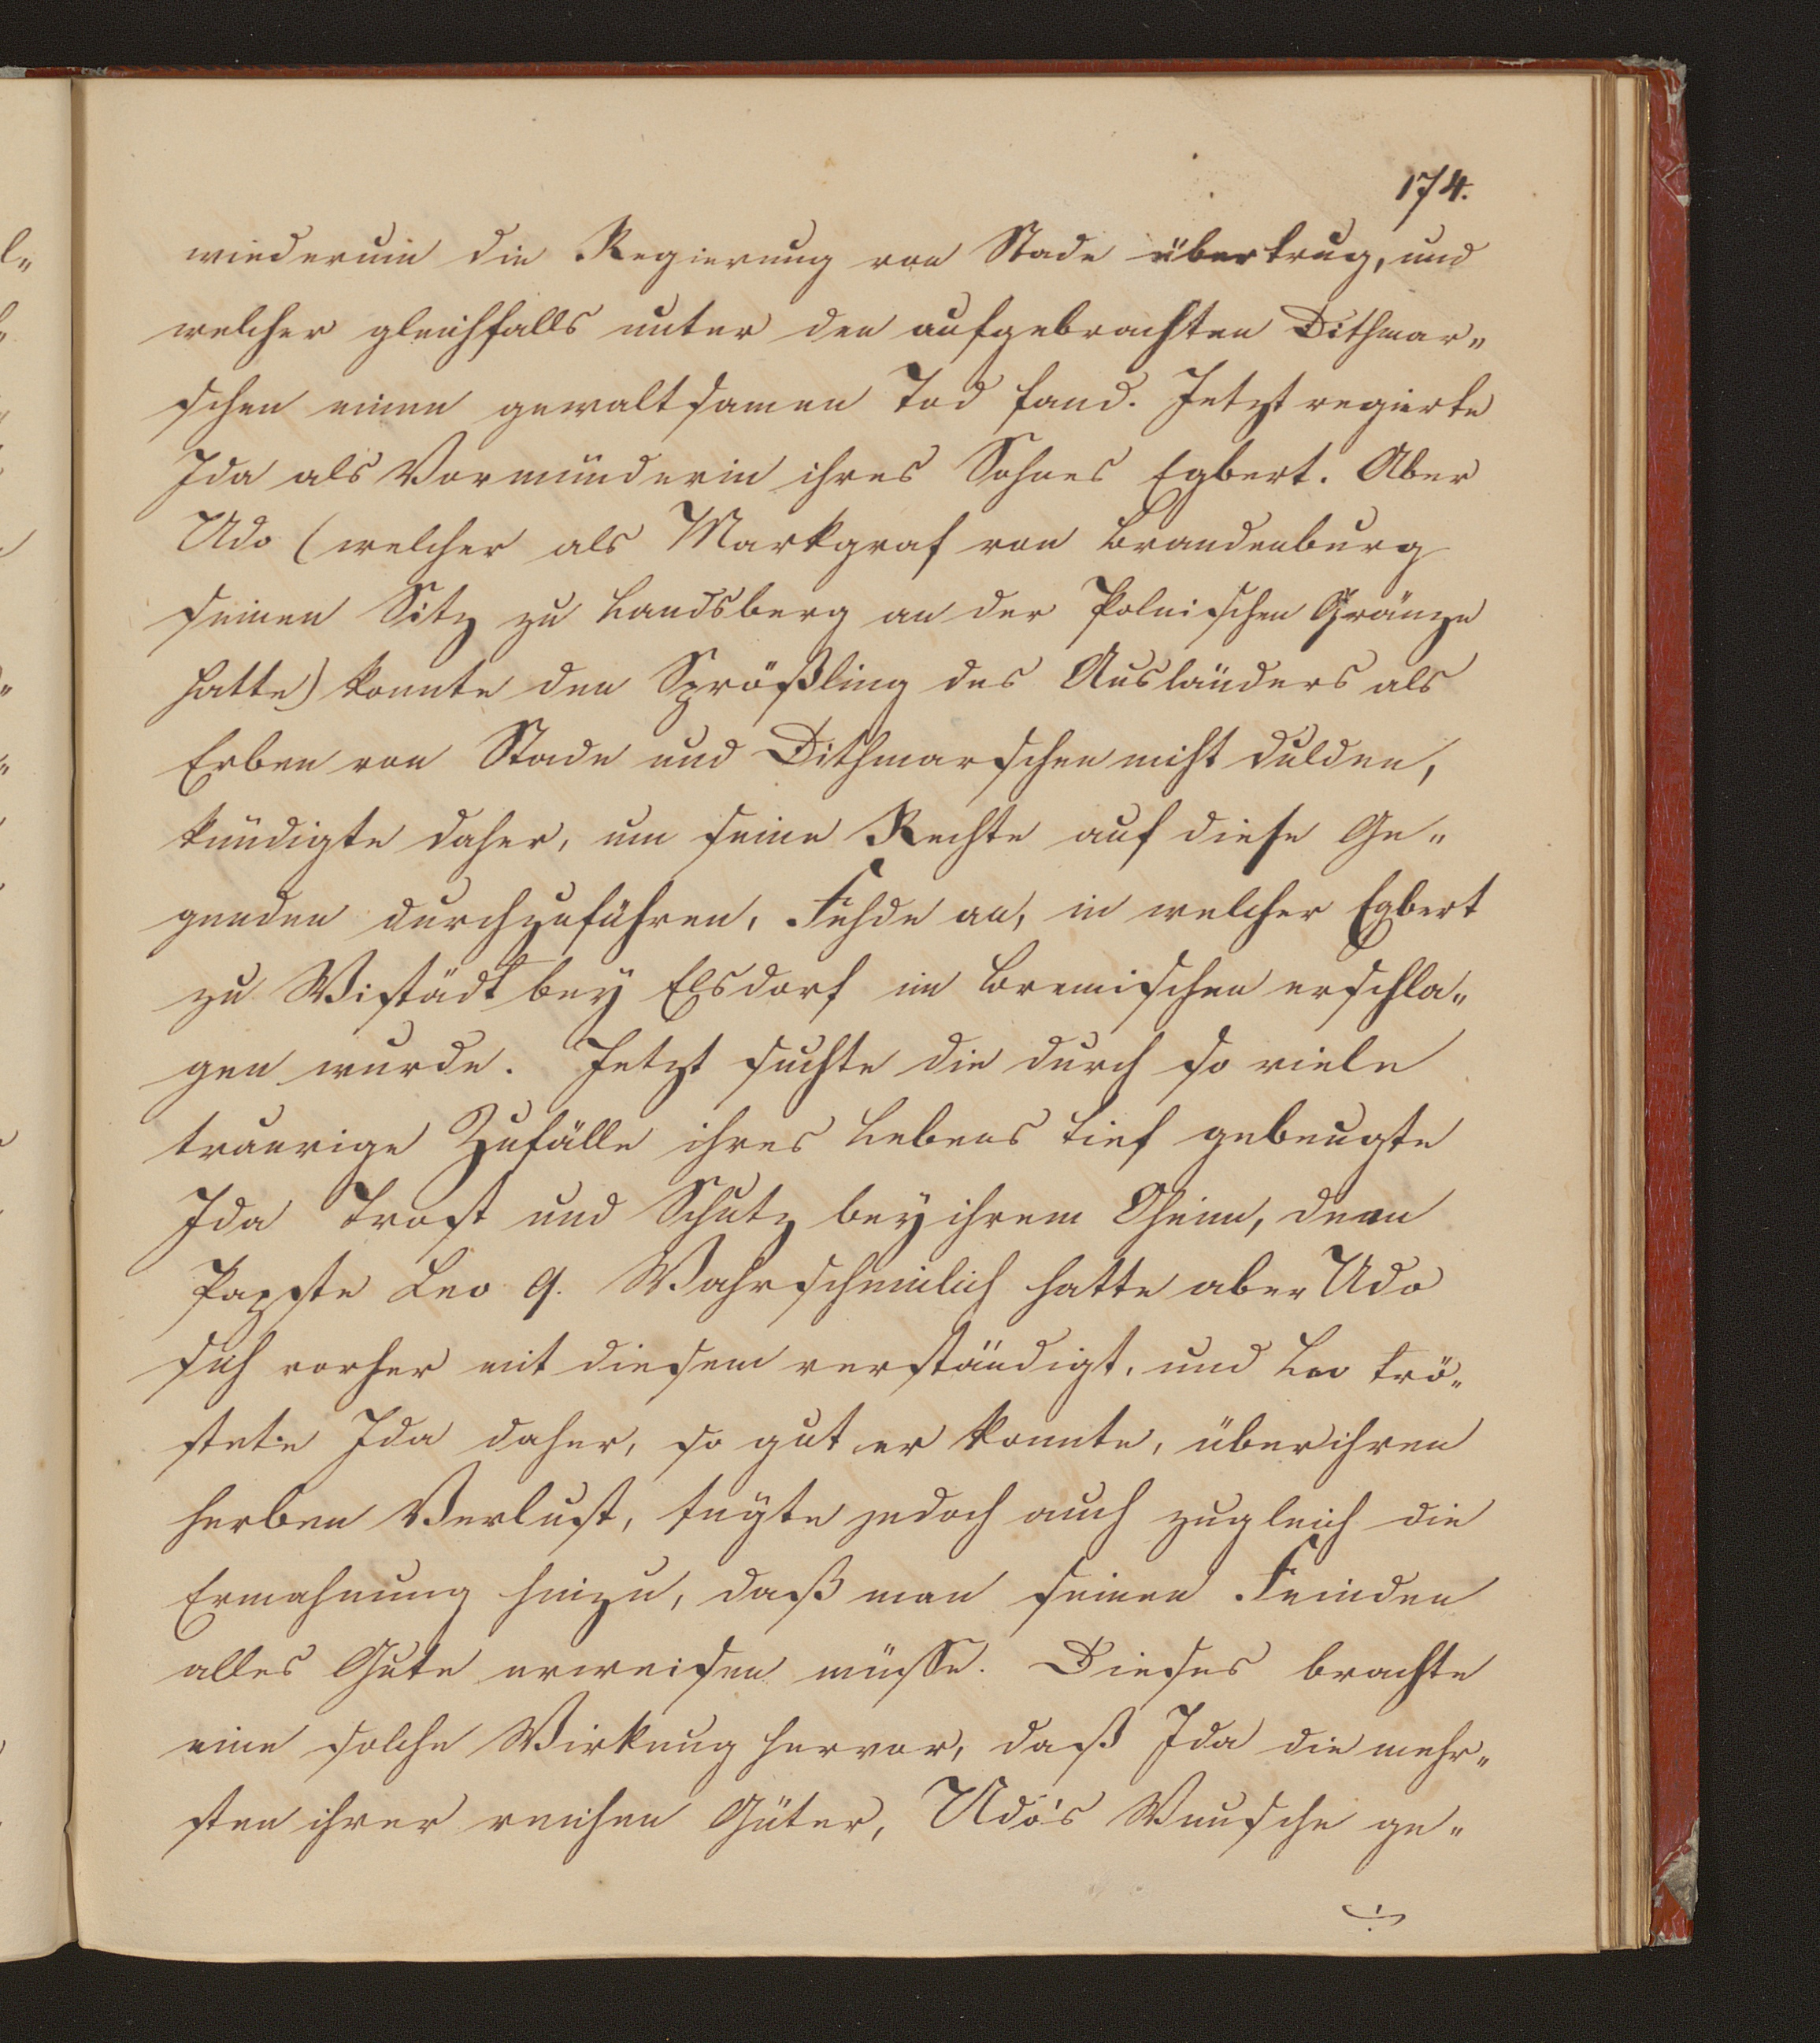 174.
wiederum die Regierung von Stade übertrug, und
welcher gleichfalls unter den aufgebrachten Dithmar„
schen einen gewaltsamen Tod fand. Jetzt regierte
Ida als Vormünderin ihres Sohnes Egbert. Aber
Udo (welcher als Markgraf von Brandenburg
seinen Sitz zu Landsberg an der Polnischen Gränze
hatte) konnte den Sprößling des Ausländers als
Erben von Stade und Dithmarschen nicht dulden,
kündigte daher, um seine Rechte auf diese Ge„
genden durchzuführen, Fehde an, in welcher Egbert
zu Wistädt bey Elsdorf im Bremischen erschla„
gen wurde. Jetzt suchte die durch so viele
traurige Zufälle ihres Lebens tief gebeugte
Ida Trost und Schutz bey ihrem Oheim, dem
Papste Leo 9. Wahrscheinlich hatte aber Udo
sich vorher mit diesem verständigt, und Leo trö„
stete Ida daher, so gut er konnte, über ihren
herben Verlust, fügte jedoch auch zugleich die
Ermahnung hinzu, daß man seinen Feinden
alles Gute erweisen müsse. Dieses brachte
eine solche Wirkung hervor, daß Ida die mehr„
sten ihrer reichen Güter, Udo's Wunsche ge„